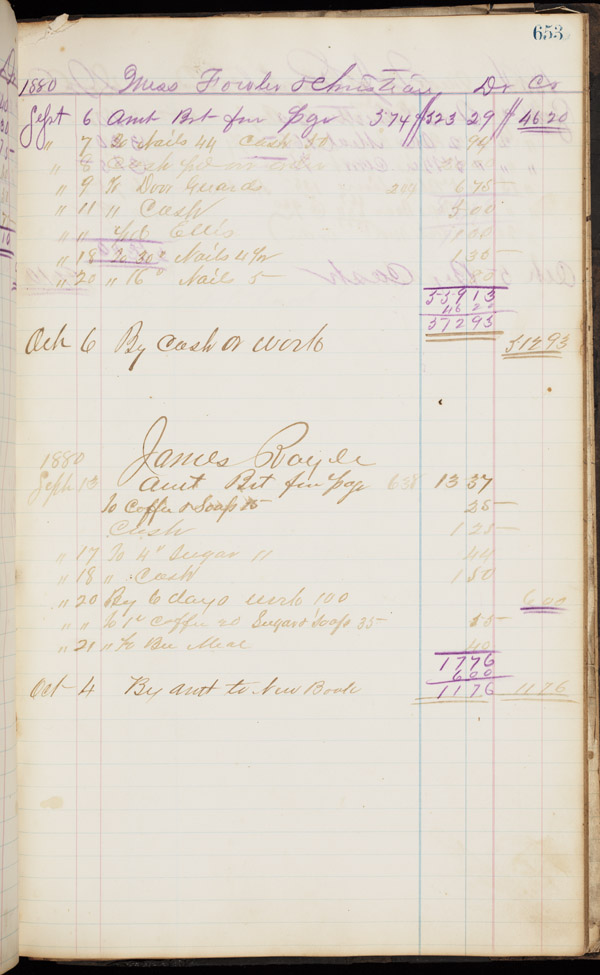 653
1880 Mess Fowler & Christian Dr Cr
Sept 6 Amt Brt from pge 574 523 29 46 20
" 7 To Nails 44 Cash 50 94
" 8
" 9 To Door Guards 6 75
" 11 " Cash 5 00
" "
" 18 Nails
" 20 " 16d Nails 5
559 13
46 20
512 93
Oct 6 By Cash or work 512 93
James Royle
1880
Sept 13 Amt Brt from pge 638 13 37
To Coffee & Soap 25
Cash 1 25
" 17 To 4# Sugar 44
" 18 " Cash 1 50
" 20 By 6 days work 100 6 00
" " To 1# Coffee 20 Sugar & Soap 35 55
" 21 " To Meal 40
17 76
6 00
11 76
Oct 4 By amt to New Book 11 76